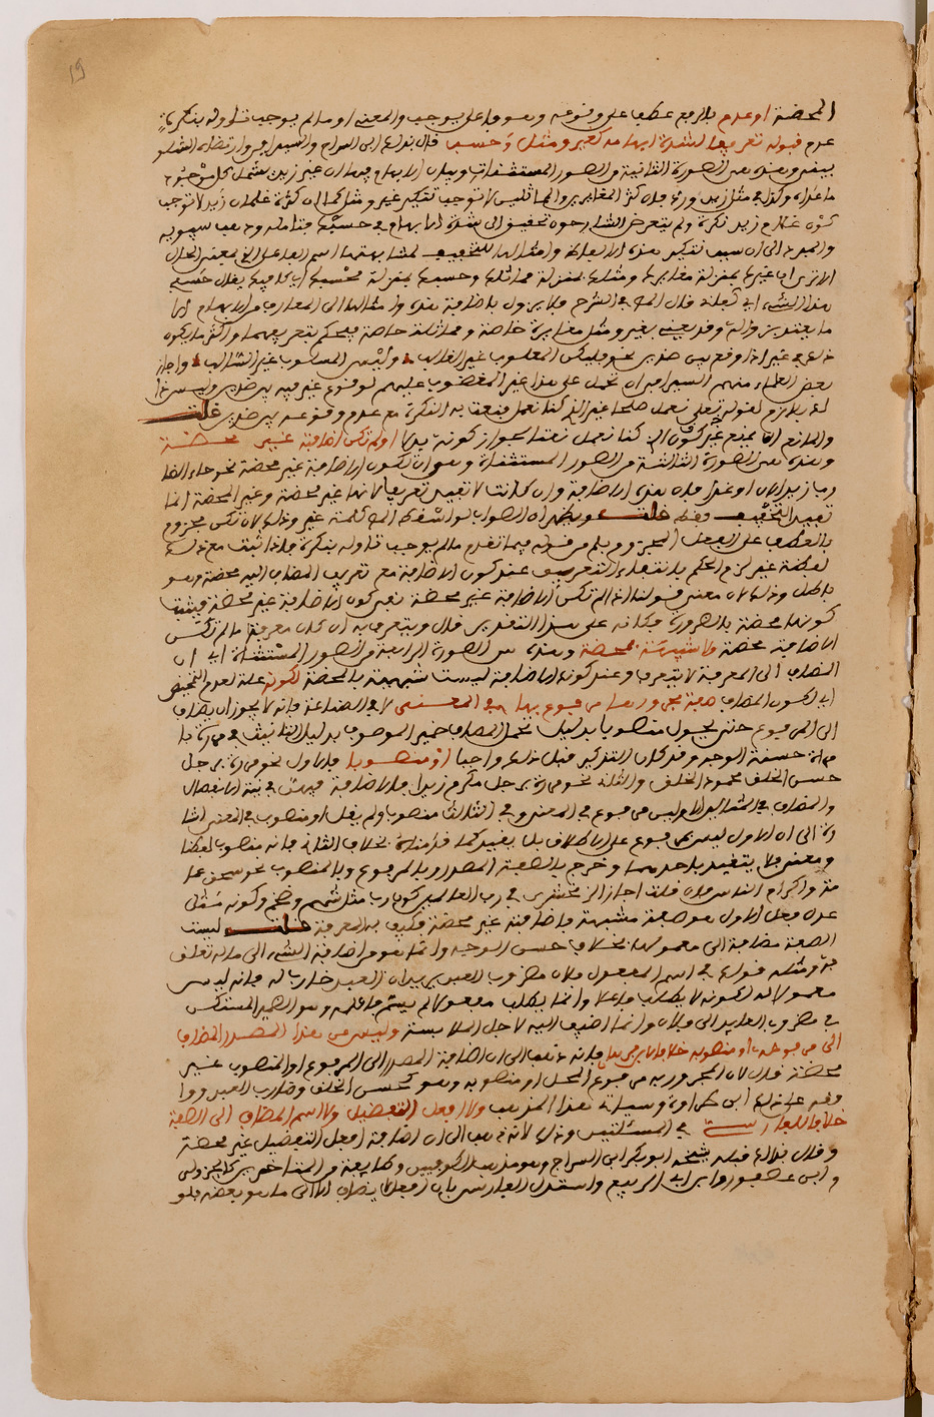 19
المحضة او عدم بالرفع عطف على وقوعه وهو فاعل يوجب والمعنى او ما لم يوجب تاوله بنكرة
عدم قبوله تعريفا لشدة ابهامه كغير ومثل وحسب قال بذلك ابن السراج والسيرافي وارتضاه الشلو
بين وهذه هي الصورة الثانية من الصور المستثنيات وبيان الابهام فيها ان غير زيد يشمل كل موجود
ما عداه وكذا في مثل زيد ورد بان كثرة المغايرين والمماثلين لا توجب تنكير غير ومثل كما ان كثرة غلمان زيد لا توجب
كون غلام زيد نكرة ولم يتعرض الشارحون لتحقيق الى شدة الابهام في حسب فتامله وذهب سيبويه
والمبرد الى ان سبب تنكير هذه الالفاظ وامثالها للتخفيف لمشابهتها اسم الفاعل الذي بمعنى الحال
الا ترى ان غيرك بمنزلة مغايرك ومثلك بمنزلة مماثلك وحسبك بمنزلة محسبك اي كافيك يقال حسبي
هذا الشيء اي كفاني قال المص في الشرح فلا يزول بالاضافة هذه وامثالها الى المعارف من الابهام الا
ما يعتد بزواله وقد يعنى بغير ومثل مغايرة خاصة ومماثلة خاصة فيحكم بتعريفهما واكثر ما يكون
ذلك في غير اذا وقع بين ضدين نحو فليكن المغلوب غير الغالب وليكن المسلوب غير السالب واجاز
بعض العلماء منهم السيرافي ان يحمل على هذا غير المغضوب عليهم لوقوع غير فيه بين ضدين وليس هذا
له بلازم لقوله تعالى نعمل صالحا غير الذي كنا نعمل فنعت به النكرة مع عدم وقوعه بين ضدين قلت
والمانع ان يمنع غير كون الذي كنا نعمل نعتا لجواز كونه بدلا او لم تكن اضافته غير محضة
وهذه هي الصورة الثالثة من الصور المستثناة وهو ان تكون الاضافة غير محضة نحو جاء الضا
رب زيد الان او غدا فان هذه الاضافة وان كانت لا تفيد تعريفا لانها غير محضة وغير المحضة انما
تفيد التخفيف فقط قلت ويظهر ان الصواب لو اسقط المص كلمة غير وذلك لان تكن مجزوم
بالعطف على الفعل المجزوم بلم من قوله فيما تقدم ما لم يوجب تاوله بنكرة فاذا ثبت مع ذلك
لفظة غير لزم الحكم بانتفاء التعريف عند كون الاضافة مع تعريف المضاف اليه محضة وهو
باطل وذلك لان معنى قولنا اذا لم تكن الاضافة غير محضة نفي كون الاضافة غير محضة فيثبت
كونها محضة بالضرورة فكانه على هذا التقدير قال ويتعرف به ان كان معرفة ما لم تكن
الاضافة محضة ولا شبيهة بمحضة وهذه هي الصورة الرابعة من الصور المستثناة اي ان
المضاف الى المعرفة لا يتعرف عند كون الاضافة ليست شبيهة بالمحضة لكونه علة لعدم التمحض
اي لكون المضاف صفة مجرورها مرفوع بها في المعنى لا في الصناعة فانه لا يجوز ان يضاف
الى المرفوع حتى يحول منصوبا بدليل تحمل المضاف ضمير الموصوف بدليل التانيث في مررت با
مراة حسنة الوجه وقد كان التذكير قبل ذلك واجبا او منصوبا فالاول نحو مررت برجل
حسن الخلق محمود الخلق والثاني نحو مررت برجل مكرم زيدا فالاضافة فيهما في نية الانفصال
والمضاف في المثالين الاولين مرفوع في المعنى وفي الثالث منصوبا ولم يقل او منصوب في المعنى اشا
رة الى ان الاول ليس مرفوع على الاطلاق بل بقيد كما قدمناه بخلاف الثاني فانه منصوب لفظا
ومعنى فلا يتقيد باحدهما وخرج بالصفة المصدر وبالمرفوع وبالمنصوب نحو سحق عما
مة واكرام الناس فان قلت اجاز الزمخشري في رب العالمين كون رب مثل شهم وضخم وكونه مثل
عدل فعلى الاول هو صفة مشبهة فاضافته غير محضة فكيف به المعرفة قلت ليست
الصفة مضافة الى معمولها بخلاف حسن الوجه وانما هو من اضافة الشيء الى ما له تعلق
به ومثله قولك في اسم المفعول فلان مضروب العبد يريد ان العبد ضارب له فانه ليس
معمولا له لكونه لا يطلب فاعلا وانما يطلب مفعولا لم يسم فاعله وهو الضمير المستكن
في مضروب العايد الى فلان وانما اضيف اليه لاجل الملابسة وليس من هذا المصدر المضاف
الى مرفوعه او منصوبه خلافا لابن برهان فانه ذهب الى ان اضافة المصدر الى المرفوع او المنصوب غير
محضة قال لان المجرور به مرفوع المحل او منصوبه وهو كحسن الخلق وضارب العبد ووا
فقه على ذلك ابن طراوة وسياتي هذا المذهب ولا افعل التفضيل ولا اسم المضاف الى الصفة
خلافا للفارسي في المسئلتين وذلك لانه ذهب الى ان اضافة افعل التفضيل غير محضة
وقال بذلك قبله شيخه ابو بكر ابن السراج وهو مذهب الكوفيين وطايفة من المتاخرين كالجزولي
وابن عصفور وابن ابي الربيع واستدل الفارسي بان افعل لا يضاف الا الى ما هو بعضه فلو